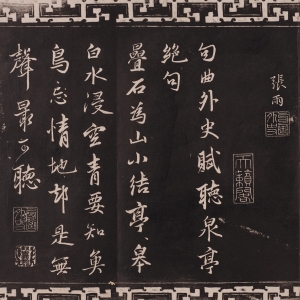 張雨
句曲外史賦聽泉亭
絶句
疊石為山小結亭幕
白水浸空青要知奠
鳥忘情地却是無
聲最可聽